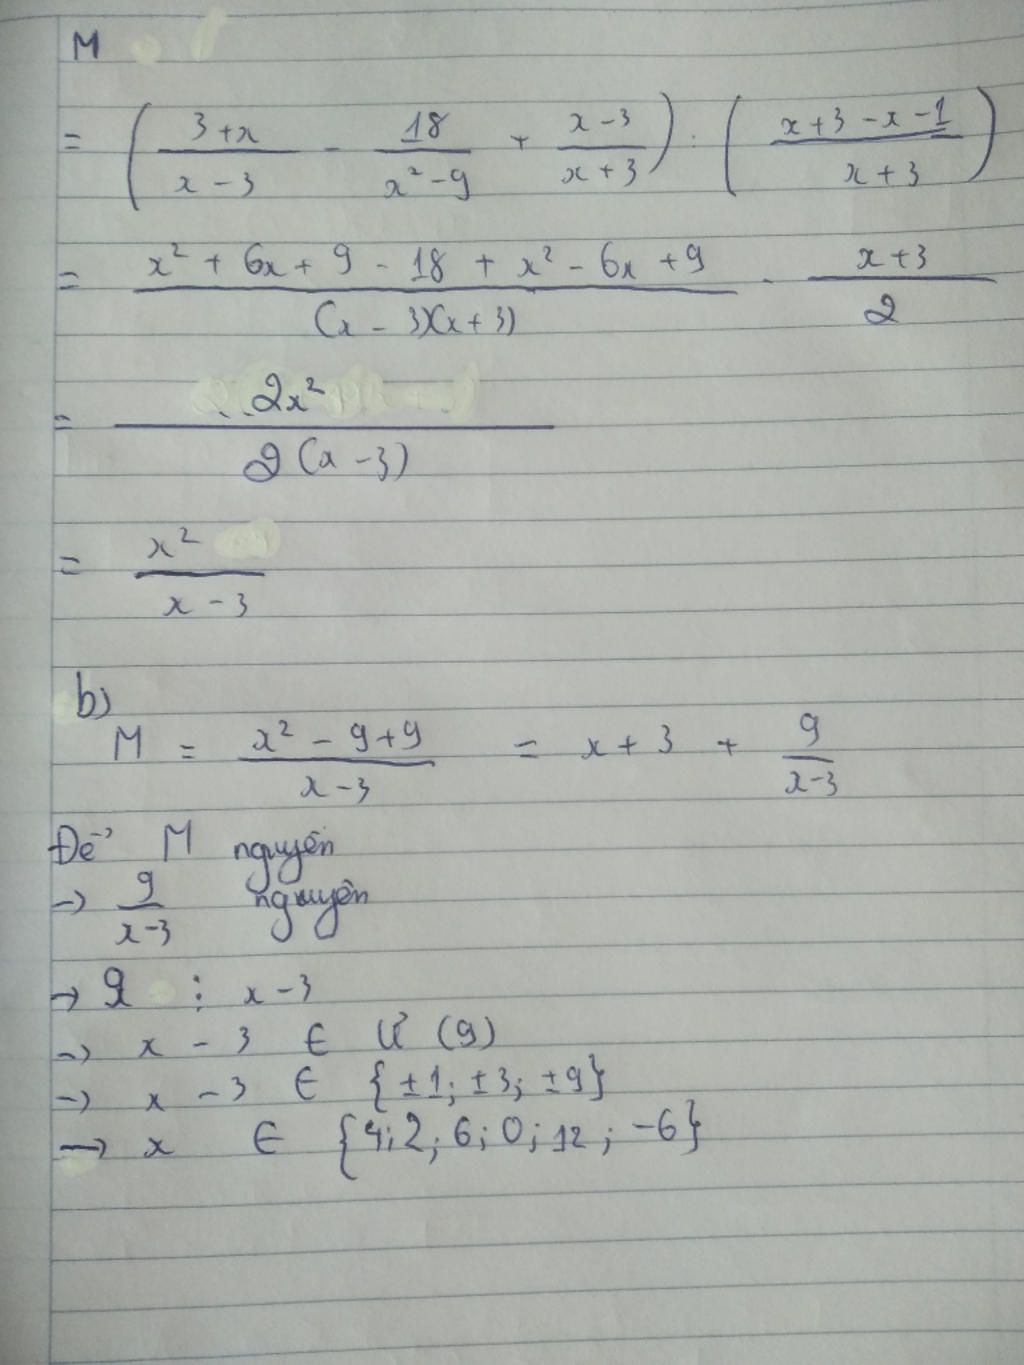 M
= ( (3+x)/(x-3) - 18/(x²-9) + (x-3)/(x+3) ) : ( (x+3-x-1)/(x+3) )
= (x² + 6x + 9 - 18 + x² - 6x + 9)/((x-3)(x+3)) · (x+3)/2
= 2x²/(2(x-3))
= x²/(x-3)
b)
M = (x² - 9 + 9)/(x-3) = x + 3 + 9/(x-3)
Để M nguyên
→ 9/(x-3) nguyên
→ 9 ⋮ x-3
→ x - 3 ∈ Ư (9)
→ x - 3 ∈ {±1; ±3; ±9}
→ x ∈ {4; 2; 6; 0; 12; -6}